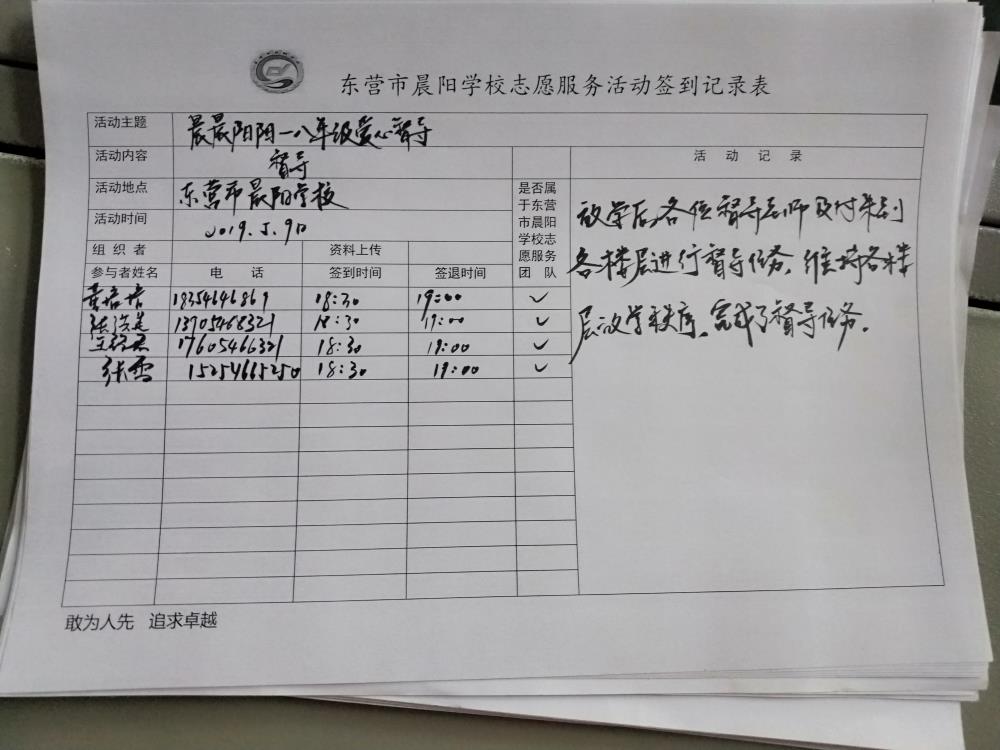 东营市晨阳学校志愿服务活动签到记录表
活动主题 晨晨阳阳一八年级爱心督导
活动内容 督导
活动地点 东营市晨阳学校
活动时间 2019.5.9日
组织者 资料上传
参与者姓名 电话 签到时间 签退时间
是否属
于东营
市晨阳
学校志
愿服务
团队
黄培培 18354646869 18:30 19:00 ✓
13705468321 18:30 19:00 ✓
17605466321 18:30 19:00 ✓
张雪 15254665250 18:30 19:00 ✓
活动记录
放学后,各位督导老师及时来到
各楼层进行督导任务,维持各楼
层放学秩序,完成了督导任务。
敢为人先 追求卓越